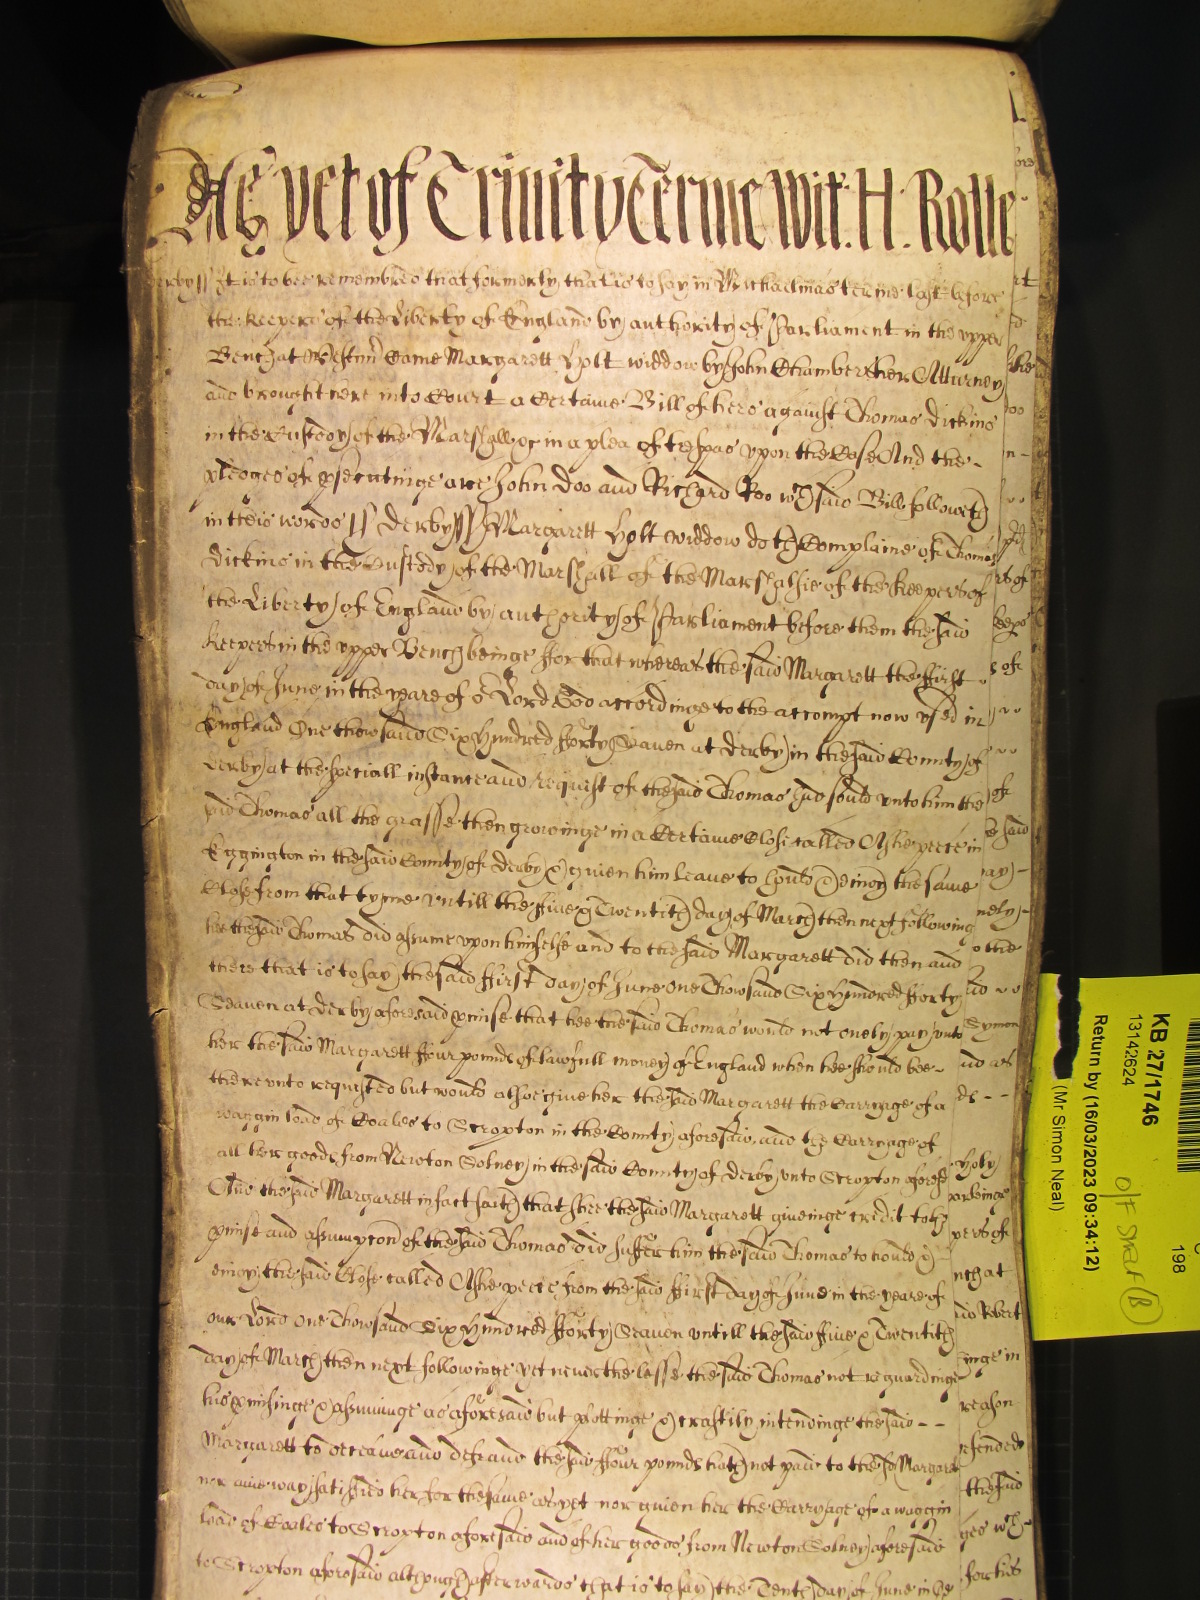 As yet of Trinity Terme Wit: H: Rolle
Derby ss It is to bee remembred that formerly, that is to say in Michaelmas terme last before
the keepers of the Liberty of England by authority of Parliament in the upper
Bench at Westmr Came Margarett Holt widdow by John Chamber her Atturney
and brought here into Court a Certaine Bill of hers against Thomas Dickins
in the Custody of the Marshall &c in a plea of trespas upon the Case And the -
pledges of prsecutinge are John Doo and Richard Roo wch said Bill followeth
in theis words ss Derby ss Margarett Holt widdow doth Complaine of Thomas
Dickins in the Custody of the Marshall of the Marshalsie of the keepers of
the Liberty of England by authority of Parliament before them the said
keepers in the upper Bench beinge ffor that whereas the said Margarett the ffirst
day of June in the yeare of or Lord God accordinge to the accompt now used in
England One thowsand Six Hundred fforty Seaven at Derby in the said County of
Derby at the speciall instance and request of the said Thomas had sould unto him the
said Thomas all the grasse then growinge in a Certaine Close called Ashe peece in
Egginton in the said County of Derby & given him leave to hould & enioy the same
Close from that tyme untill the ffive & Twentith day of March then next following
hee the said Thomas did assume upon himselfe and to the said Margarett did then and
there that is to say the said ffirst day of June one Thowsand Six Hundred fforty
Seaven at Derby aforesaid pmise that hee the said Thomas would not onely pay unto
her the said Margarett ffour pounds of lawfull money of England when hee should bee -
thereunto requested but would alsoe give her the said Margarett the Carryage of a
waggin load of Coales to Scropton in the County aforesaid, and the Carryage of
all her goods from Newton Solney in the said County of Derby unto Scropton aforesd
And the said Margarett in fact saith that shee the said Margarett giveinge credit to the
pmise and assumpcon of the said Thomas did suffer him the said Thomas to hould &
enioy the said Close called Ashe peece from the said ffirst day of June in the yeare of
our Lord one Thowsand Six Hundred fforty Seaven untill the said ffive & Twentith
day of March then next followinge yet neverthelesse the said Thomas not reguardinge
his pmisinge & assuminge as aforesaid but plottinge & craftily intendinge the said - -
Margarett to deceave and defraud the said ffour pounds hath not paid to the sd Margarett
nor anie way satisfied her for the same as yet nor given her the Carryage of a waggin
load of Coales to Scropton aforesaid and of her goods from Newton Solney aforesaid
to Scropton aforesaid although afterwards that is to say the Tenth day of June in the
KB 27/1746
13142624
Return by (16/03/2023 09:34:12)
(Mr Simon Neal)
198